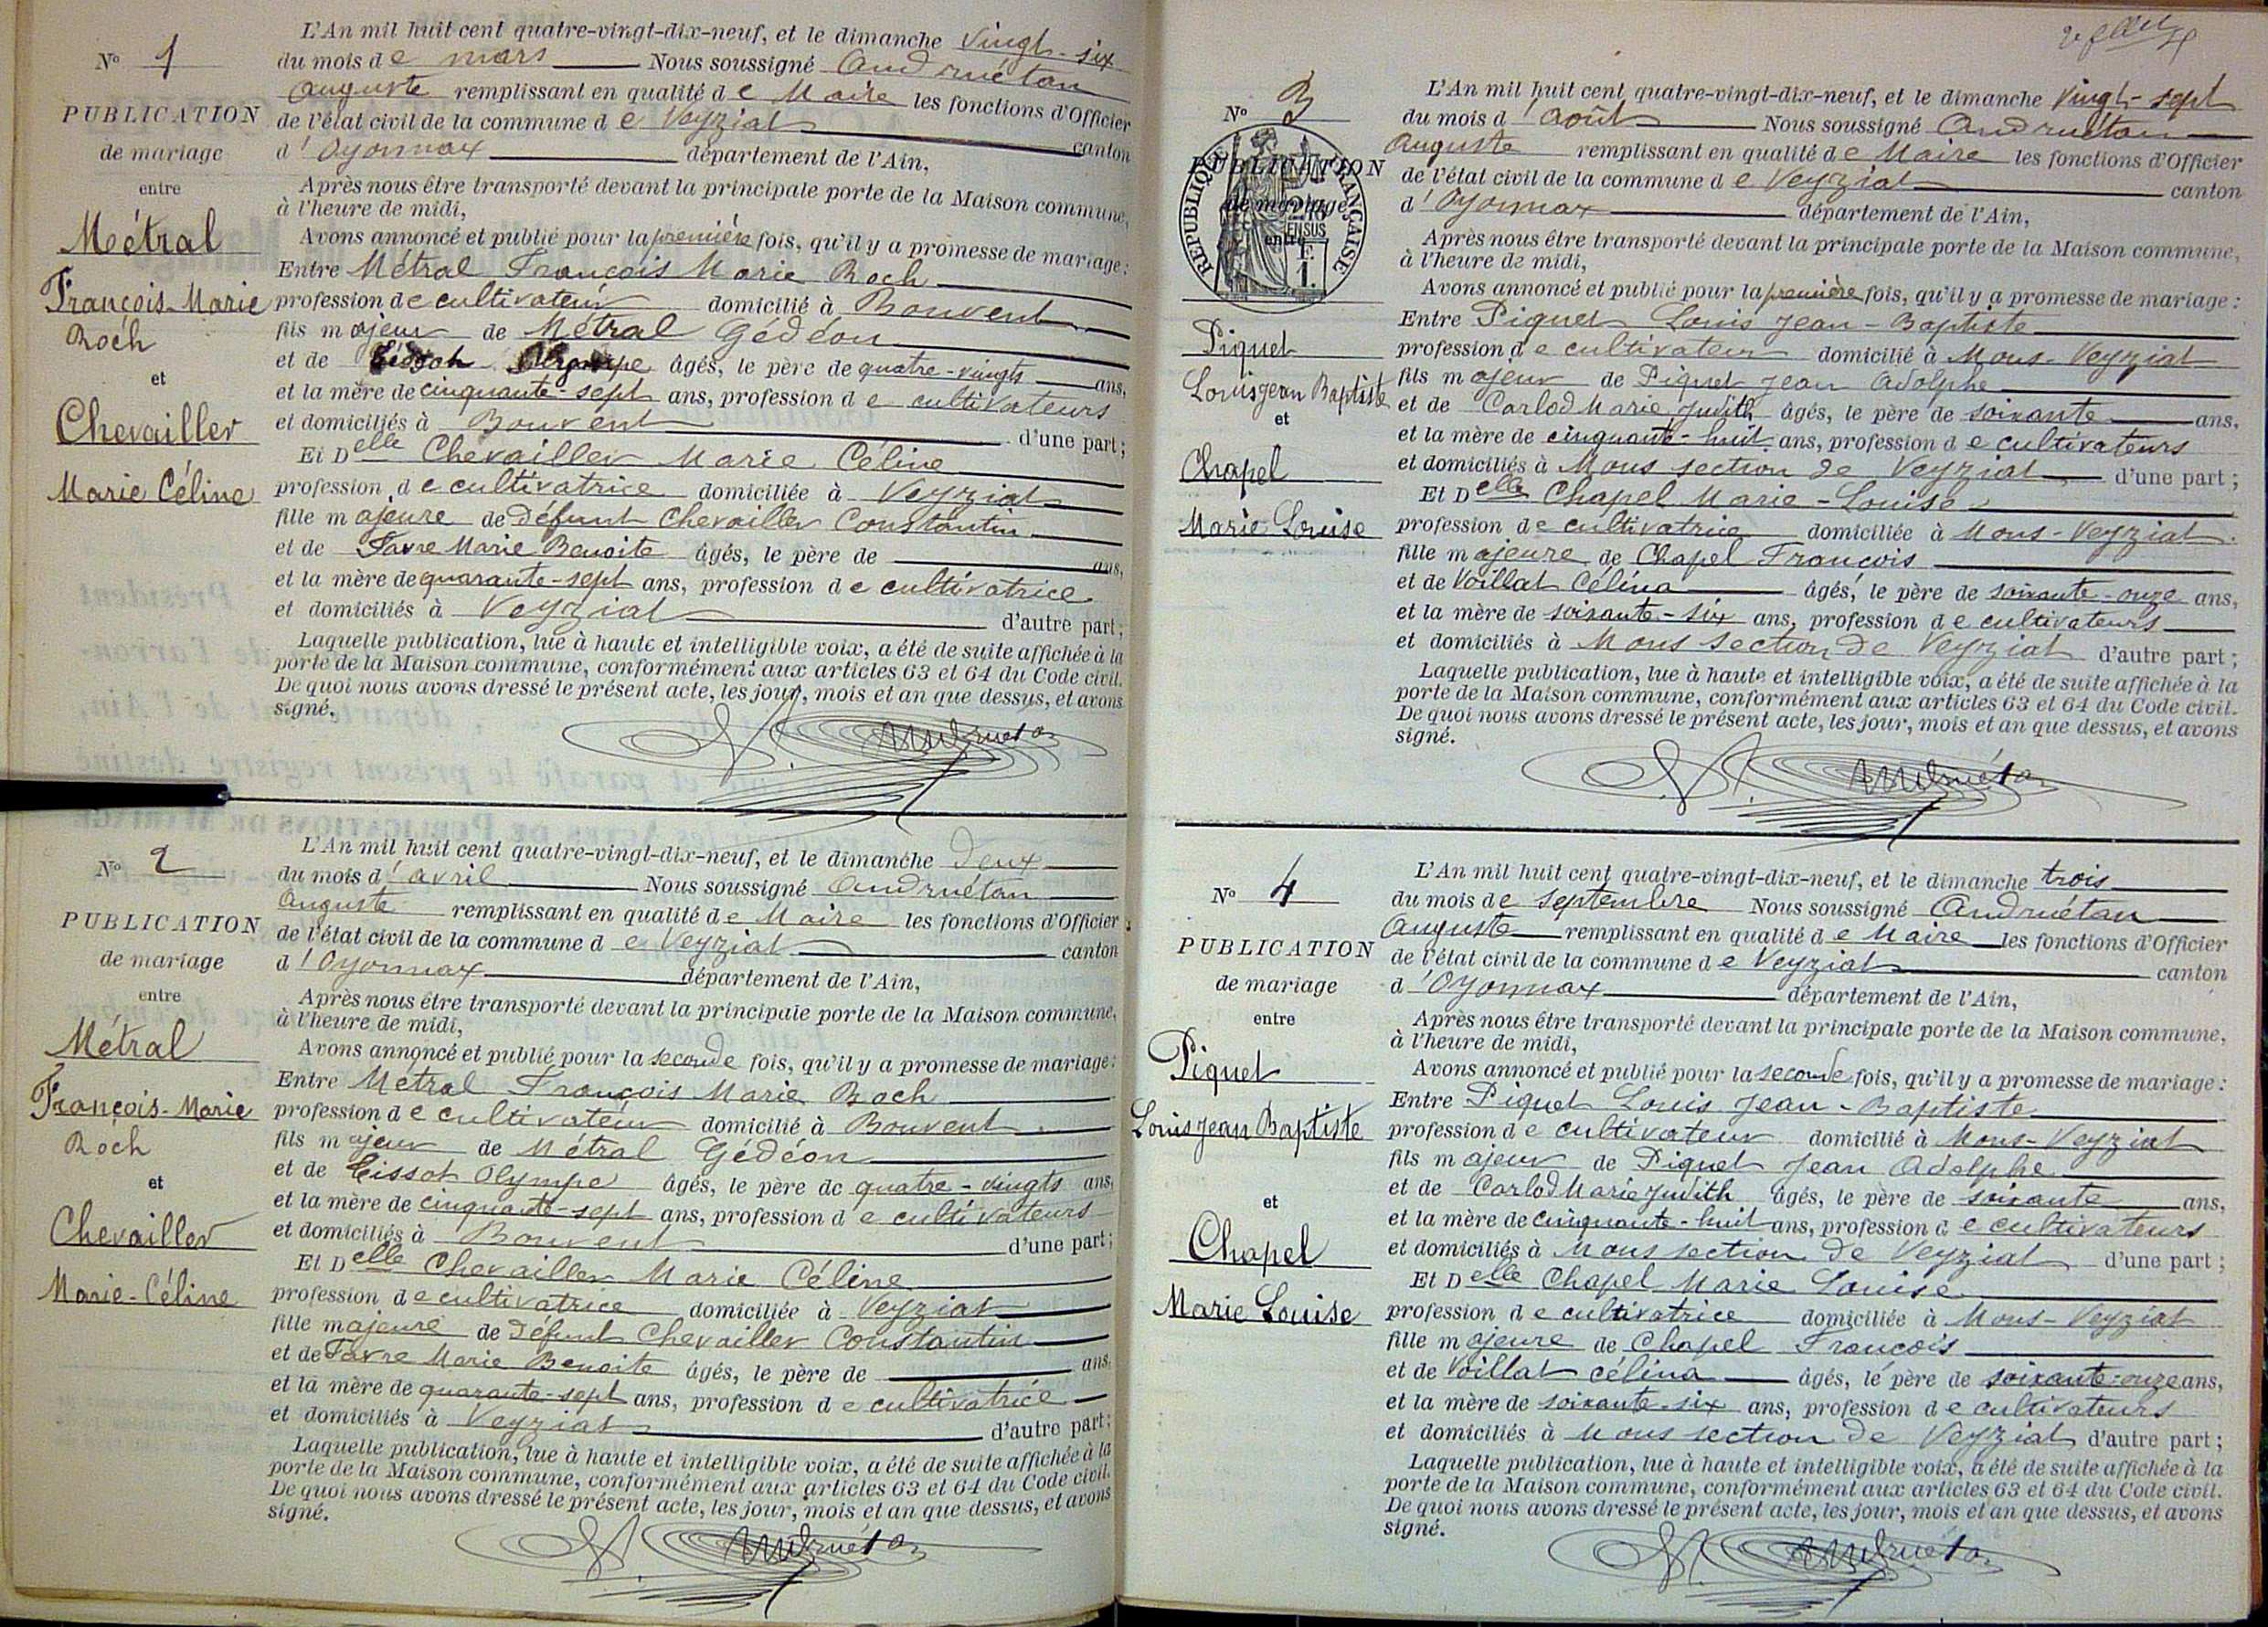 N° 1
PUBLICATION
de mariage
entre
Métral
François-Marie
Roch
et
Chevailler
Marie Céline
L'An mil huit cent quatre-vingt-dix-neuf, et le dimanche vingt-six
du mois de mars Nous soussigné Andruétan
Auguste remplissant en qualité de Maire les fonctions d'Officier
de l'état civil de la commune de Veyziat canton
d'Oyonnax département de l'Ain,
Après nous être transporté devant la principale porte de la Maison commune,
à l'heure de midi,
Avons annoncé et publié pour la première fois, qu'il y a promesse de mariage :
Entre Métral François Marie Roch
profession de cultivateur domicilié à Bouvent
fils majeur de Métral Gédéon
et de Tissot âgés, le père de quatre-vingts ans,
et la mère de cinquante-sept ans, profession de cultivateurs
et domiciliés à Bouvent d'une part ;
Et Delle Chevailler Marie Céline
profession de cultivatrice domiciliée à Veyziat
fille majeure de Défunt Chevailler Constantin
et de Favre Marie Benoite âgés, le père de ans,
et la mère de quarante-sept ans, profession de cultivatrice
et domiciliés à Veyziat d'autre part ;
Laquelle publication, lue à haute et intelligible voix, a été de suite affichée à la
porte de la Maison commune, conformément aux articles 63 et 64 du Code civil.
De quoi nous avons dressé le présent acte, les jour, mois et an que dessus, et avons
signé.
Andruétan
N° 2
PUBLICATION
de mariage
entre
Métral
François-Marie
Roch
et
Chevailler
Marie-Céline
L'An mil huit cent quatre-vingt-dix-neuf, et le dimanche deux
du mois d'avril Nous soussigné Andruétan
Auguste remplissant en qualité de Maire les fonctions d'Officier
de l'état civil de la commune de Veyziat canton
d'Oyonnax département de l'Ain,
Après nous être transporté devant la principale porte de la Maison commune,
à l'heure de midi,
Avons annoncé et publié pour la seconde fois, qu'il y a promesse de mariage :
Entre Métral François Marie Roch
profession de cultivateur domicilié à Bouvent
fils majeur de Métral Gédéon
et de Tissot Olympe âgés, le père de quatre-vingts ans,
et la mère de cinquante-sept ans, profession de cultivateurs
et domiciliés à Bouvent d'une part ;
Et Delle Chevailler Marie Céline
profession de cultivatrice domiciliée à Veyziat
fille majeure de Défunt Chevailler Constantin
et de Favre Marie Benoite âgés, le père de ans,
et la mère de quarante-sept ans, profession de cultivatrice
et domiciliés à Veyziat d'autre part ;
Laquelle publication, lue à haute et intelligible voix, a été de suite affichée à la
porte de la Maison commune, conformément aux articles 63 et 64 du Code civil.
De quoi nous avons dressé le présent acte, les jour, mois et an que dessus, et avons
signé.
Andruétan
N° 3
PUBLICATION
de mariage
entre
RÉPUBLIQUE FRANÇAISE
Piquet
Louis Jean Baptiste
et
Chapel
Marie Louise
L'An mil huit cent quatre-vingt-dix-neuf, et le dimanche vingt-sept
du mois d'Août Nous soussigné Andruétan
Auguste remplissant en qualité de Maire les fonctions d'Officier
de l'état civil de la commune de Veyziat canton
d'Oyonnax département de l'Ain,
Après nous être transporté devant la principale porte de la Maison commune,
à l'heure de midi,
Avons annoncé et publié pour la première fois, qu'il y a promesse de mariage :
Entre Piquet Louis Jean-Baptiste
profession de cultivateur domicilié à Mons-Veyziat
fils majeur de Piquet Jean Adolphe
et de Carlod Marie Judith âgés, le père de soixante ans,
et la mère de cinquante-huit ans, profession de cultivateurs
et domiciliés à Mons section de Veyziat d'une part ;
Et Delle Chapel Marie-Louise
profession de cultivatrice domiciliée à Mons-Veyziat
fille majeure de Chapel François
et de Voillat Célina âgés, le père de soixante-onze ans,
et la mère de soixante-six ans, profession de cultivateurs
et domiciliés à Mons section de Veyziat d'autre part ;
Laquelle publication, lue à haute et intelligible voix, a été de suite affichée à la
porte de la Maison commune, conformément aux articles 63 et 64 du Code civil.
De quoi nous avons dressé le présent acte, les jour, mois et an que dessus, et avons
signé.
Andruétan
N° 4
PUBLICATION
de mariage
entre
Piquet
Louis Jean Baptiste
et
Chapel
Marie Louise
L'An mil huit cent quatre-vingt-dix-neuf, et le dimanche trois
du mois de septembre Nous soussigné Andruétan
Auguste remplissant en qualité de Maire les fonctions d'Officier
de l'état civil de la commune de Veyziat canton
d'Oyonnax département de l'Ain,
Après nous être transporté devant la principale porte de la Maison commune,
à l'heure de midi,
Avons annoncé et publié pour la seconde fois, qu'il y a promesse de mariage :
Entre Piquet Louis Jean-Baptiste
profession de cultivateur domicilié à Mons-Veyziat
fils majeur de Piquet Jean Adolphe
et de Carlod Marie Judith âgés, le père de soixante ans,
et la mère de cinquante-huit ans, profession de cultivateurs
et domiciliés à Mons section de Veyziat d'une part ;
Et Delle Chapel Marie Louise
profession de cultivatrice domiciliée à Mons-Veyziat
fille majeure de Chapel François
et de Voillat Célina âgés, le père de soixante-onze ans,
et la mère de soixante-six ans, profession de cultivateurs
et domiciliés à Mons section de Veyziat d'autre part ;
Laquelle publication, lue à haute et intelligible voix, a été de suite affichée à la
porte de la Maison commune, conformément aux articles 63 et 64 du Code civil.
De quoi nous avons dressé le présent acte, les jour, mois et an que dessus, et avons
signé.
Andruétan